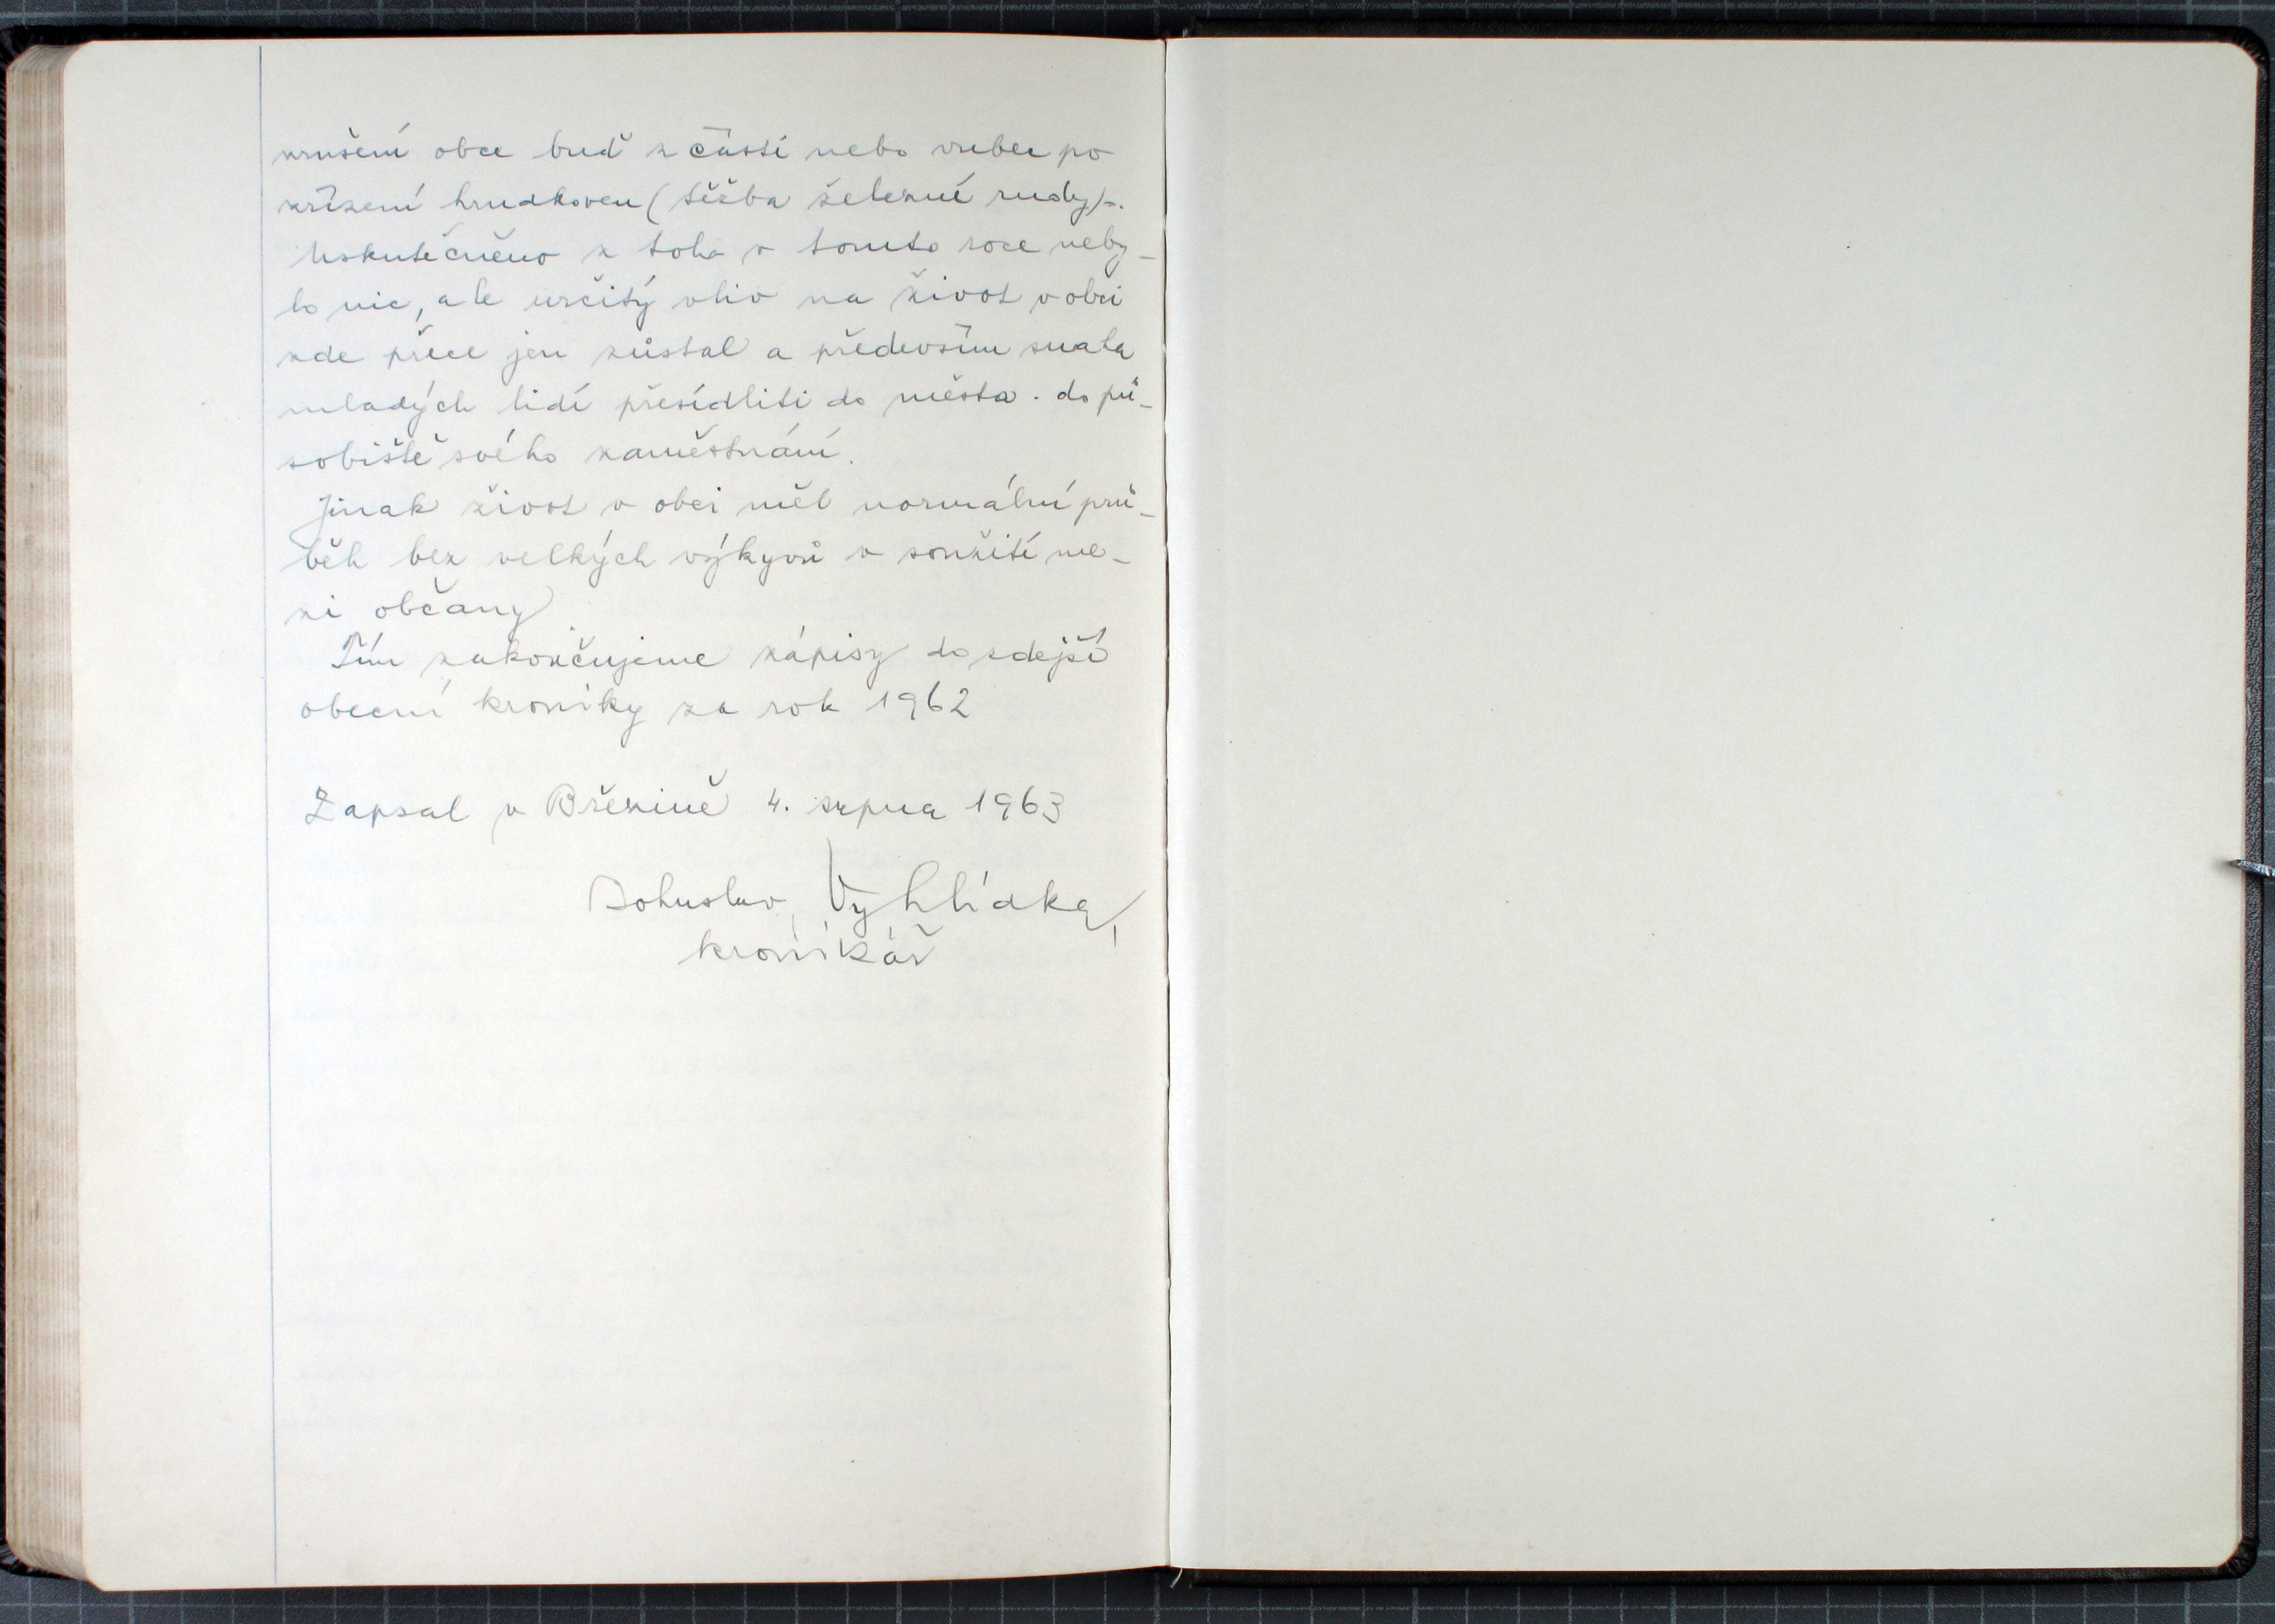 zrušení obce buď z částí nebo vubec po
zřízení hrudkoven (těžba železné rudy).
Uskutečněno z toho v tomto roce neby-
lo nic, ale určitý vliv na život v obci
zde přece jen zůstal a především snaha
mladých lidí přesídliti do města. do pů-
sobiště svého zaměstnání.
Jinak život v obci měl normální prů-
běh bez velkých výkyvů v soužití me-
zi občany
Tím zakončujeme zápisy do zdejší
obecní kroniky za rok 1962
Zapsal v Březině 4. srpna 1963
Bohuslav Vyhlídka,
kronikář